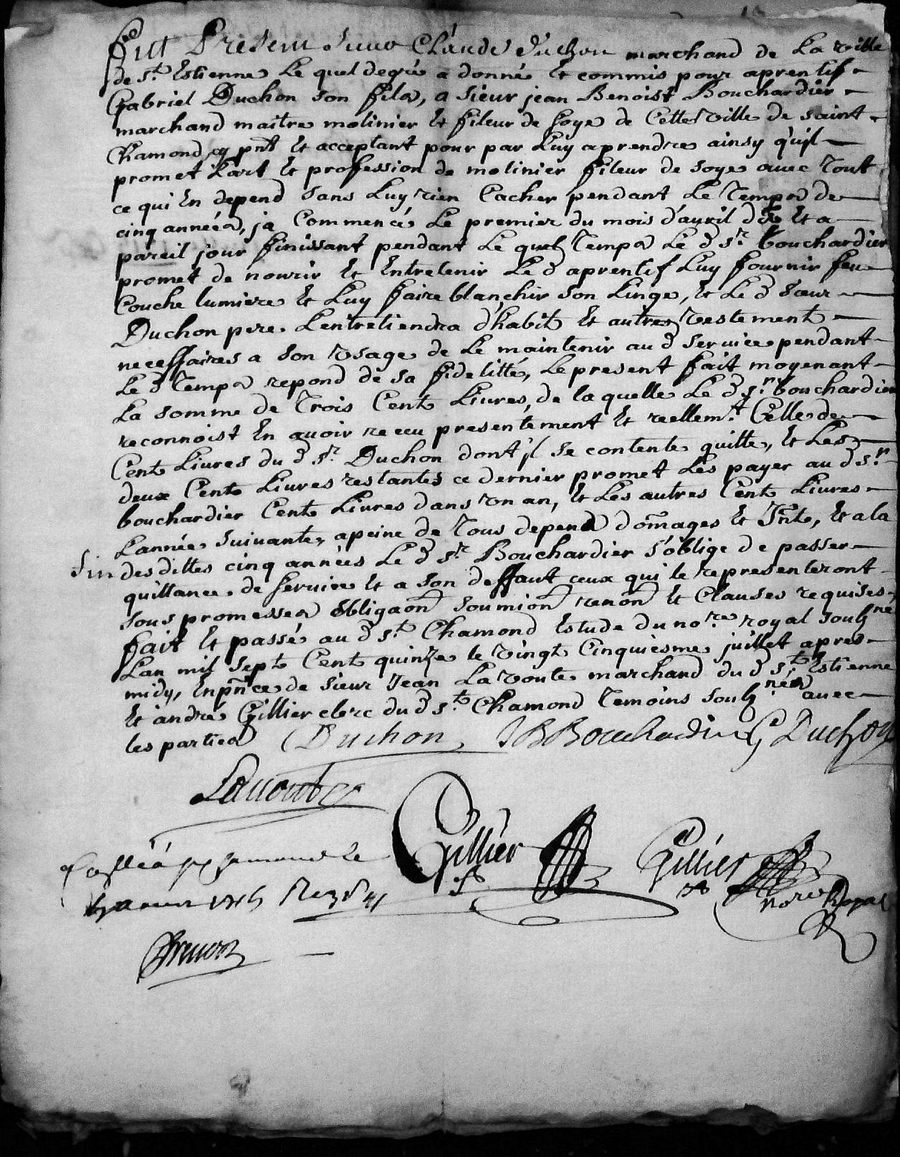 Fut Present Sieur Claude Duchon marchand de La ville
de St Estienne Le quel degré a donné Et commis pour aprentif
Gabriel Duchon son fils, a sieur jean Benoist Bouchardier
marchand maitre molinier Et fileur de soye de Cette ville de saint
Chamond, cy pnt Et acceptant pour par Luy aprendre ainsy qu'il
promet L'art Et profession de molinier fileur de soye avec Tout
ce qui En depend sans Luy rien Cacher pendant Le Temps de
cinq années, ja Commencé Le premier du mois d'avril dr Et a
pareil jour finissant pendant Le quel Temps Le d sr bouchardier
promet de nourir Et Entretenir Le d aprentif Luy fournir feu
Couche lumiere Et Luy faire blanchir son Linge, Et Le d sieur
Duchon pere Lentretiendra d'habit Et autres vestement
necessaires a son vsage de Le maintenir au d service pendant
Le d Temps repond de sa fidelitté, Le present fait moyenant
La somme de Trois Cent Livres, de la quelle Le d sr bouchardier
reconnoist En avoir receu presentement Et reellemt Celle de
Cent Livres du d sr Duchon dont jl se contente quitte, Et Les
deux Cent Livres restantes ce dernier promet Les payer au d sr
bouchardier Cent Livres dans vn an, Et Les autres Cent Livres
Lannée suivante, a peine de Tous depend domages Et Jnts, Et a la
fin des dittes cinq années Le d sr Bouchardier s'oblige de passer
quittance de service Et a son deffaut ceux qui le representeront
sous promesses obligaon soumion renon Et Clauses requises
fait Et passé au d st Chamond Estude du nore royal soubné
Lan mil sept Cent quinze le vingt Cinquiesme juillet apres
midy, En pnce de sieur Jean La voute marchand du d st Estienne
Et andré Gillier clerc du d st Chamond Temoins soubnés avec
les parties Duchon JBBouchardier G Duchon
Lavoute
Gillier Gillier
nore Royal